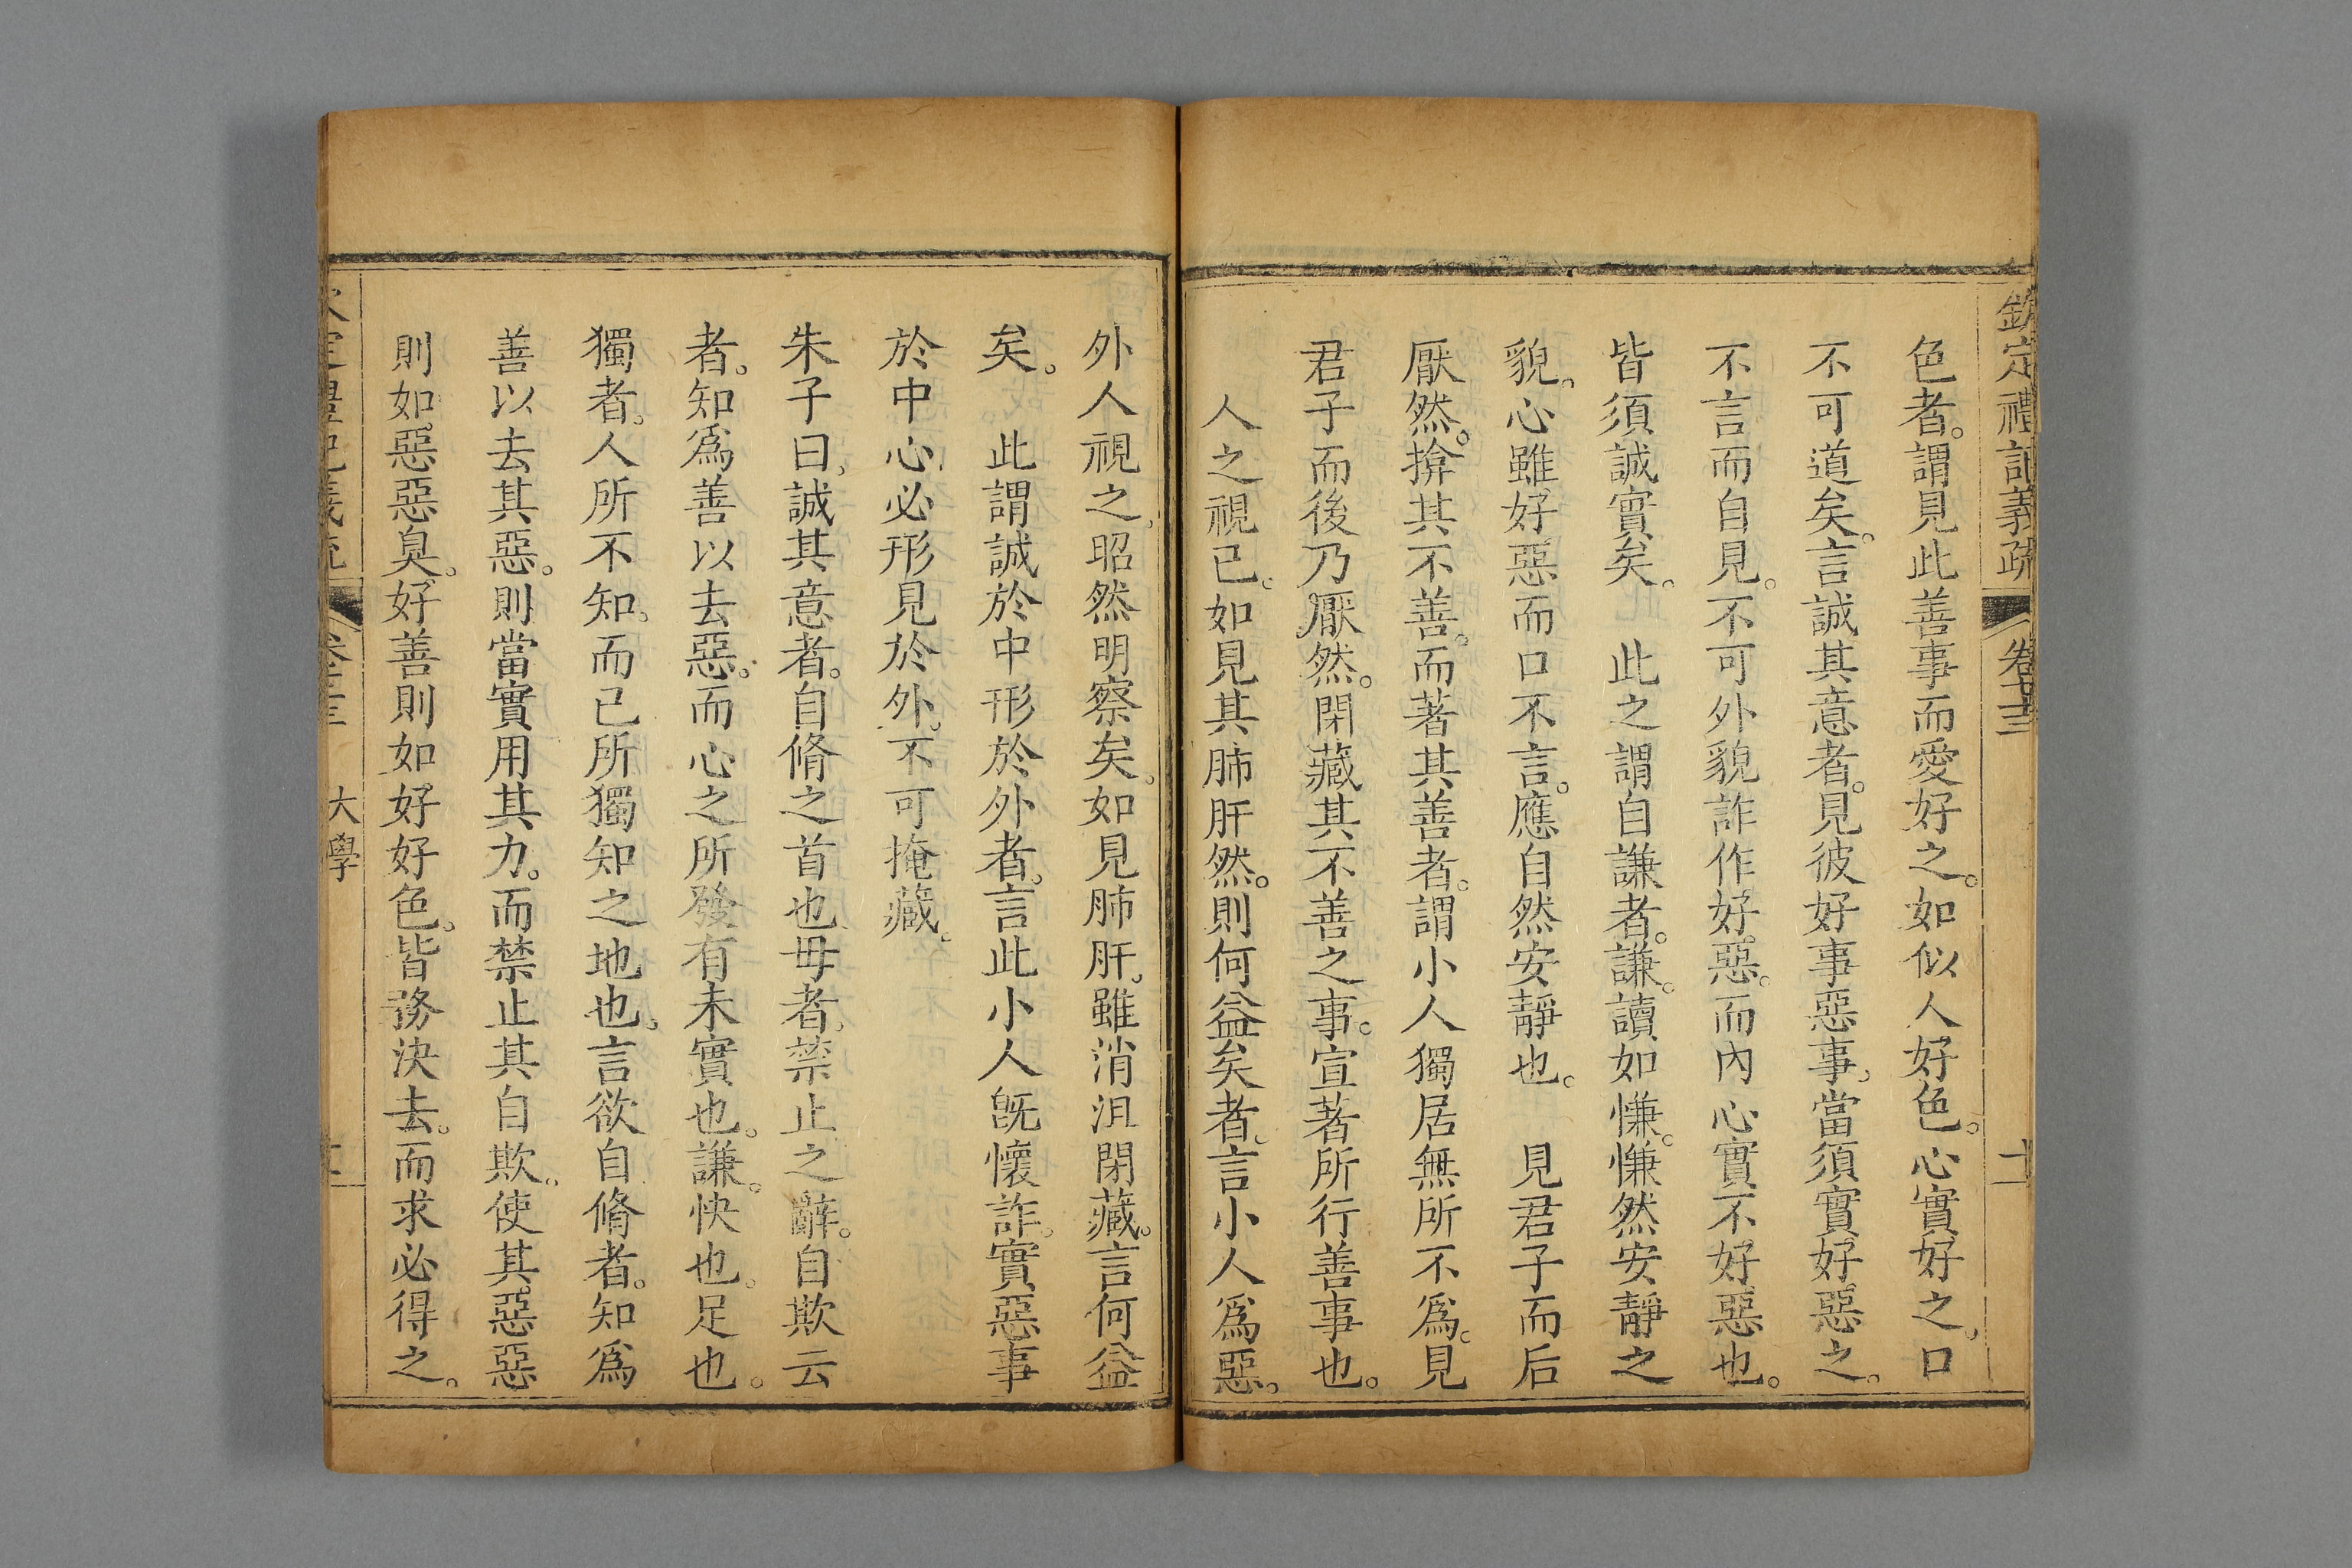 欽定禮記義疏 卷七十三 十一
色者。謂見此善事而愛好之。如似人好色。心實好之。口
不可道矣。言誠其意者。見彼好事惡事。當須實好惡之。
不言而自見。不可外貌詐作好惡。而內心實不好惡也。
皆須誠實矣。　此之謂自謙者。謙。讀如慊。慊然安靜之
貌。心雖好惡而口不言。應自然安靜也。　見君子而后
厭然。揜其不善。而著其善者。謂小人獨居無所不為。見
君子而後乃厭然。閉藏其不善之事。宣著所行善事也。
人之視已。如見其肺肝然。則何益矣者。言小人為惡。
外人視之。昭然明察矣。如見肺肝。雖消沮閉藏。言何益
矣。　此謂誠於中形於外者。言此小人旣懷詐。實惡事
於中心。必形見於外。不可掩藏。
朱子曰。誠其意者。自脩之首也。毋者。禁止之辭。自欺云
者。知爲善以去惡。而心之所發有未實也。謙。快也。足也。
獨者。人所不知。而已所獨知之地也。言欲自脩者。知爲
善以去其惡。則當實用其力。而禁止其自欺。使其惡惡
則如惡惡臭。好善則如好好色。皆務決去。而求必得之。
大學